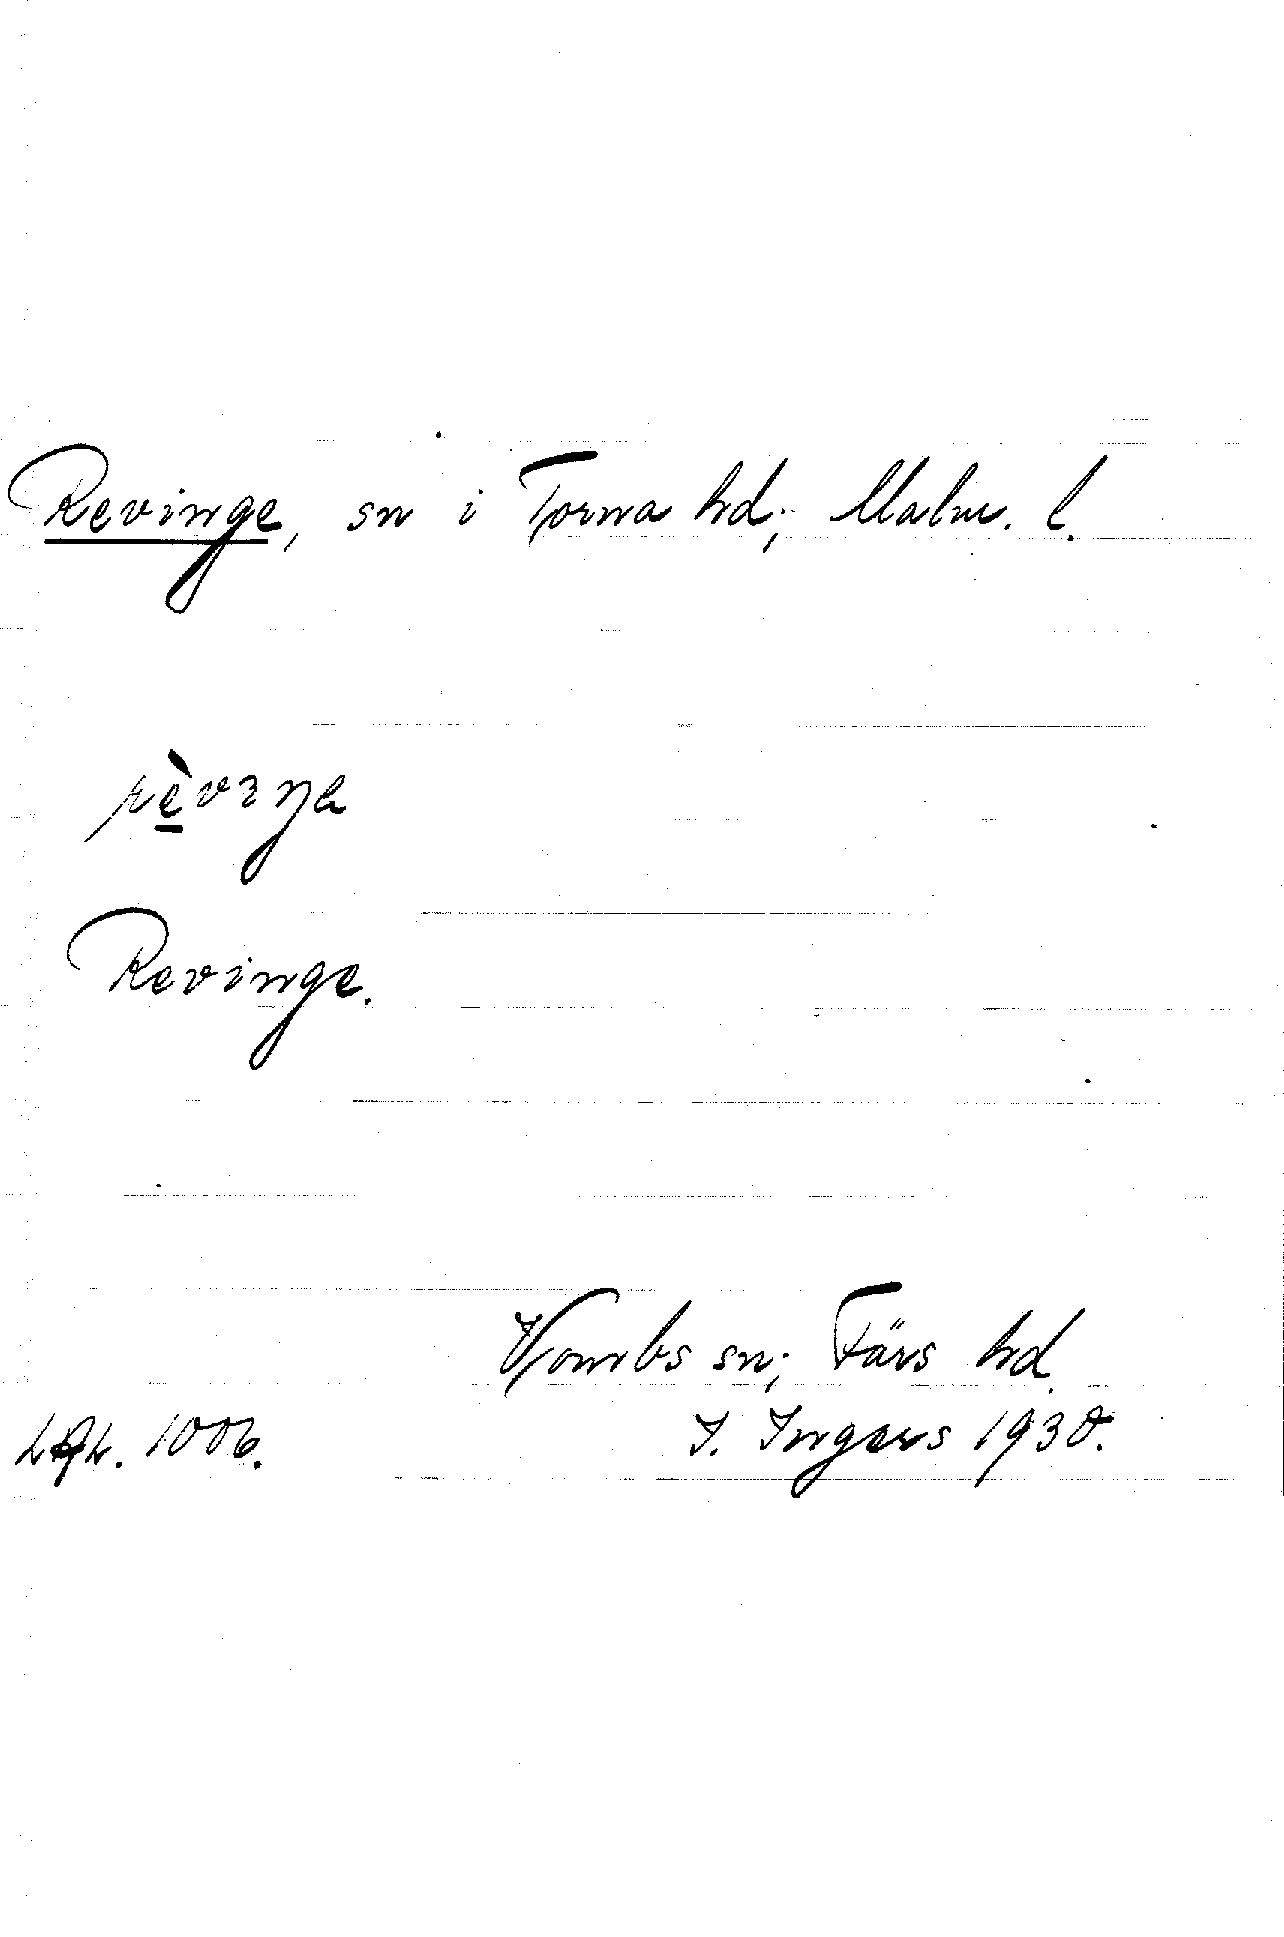 Revinge, sn i Torna hd; Malm. l.
Revinge.
Vombs sn; Färs hd.
1006. I. Ingers 1930.